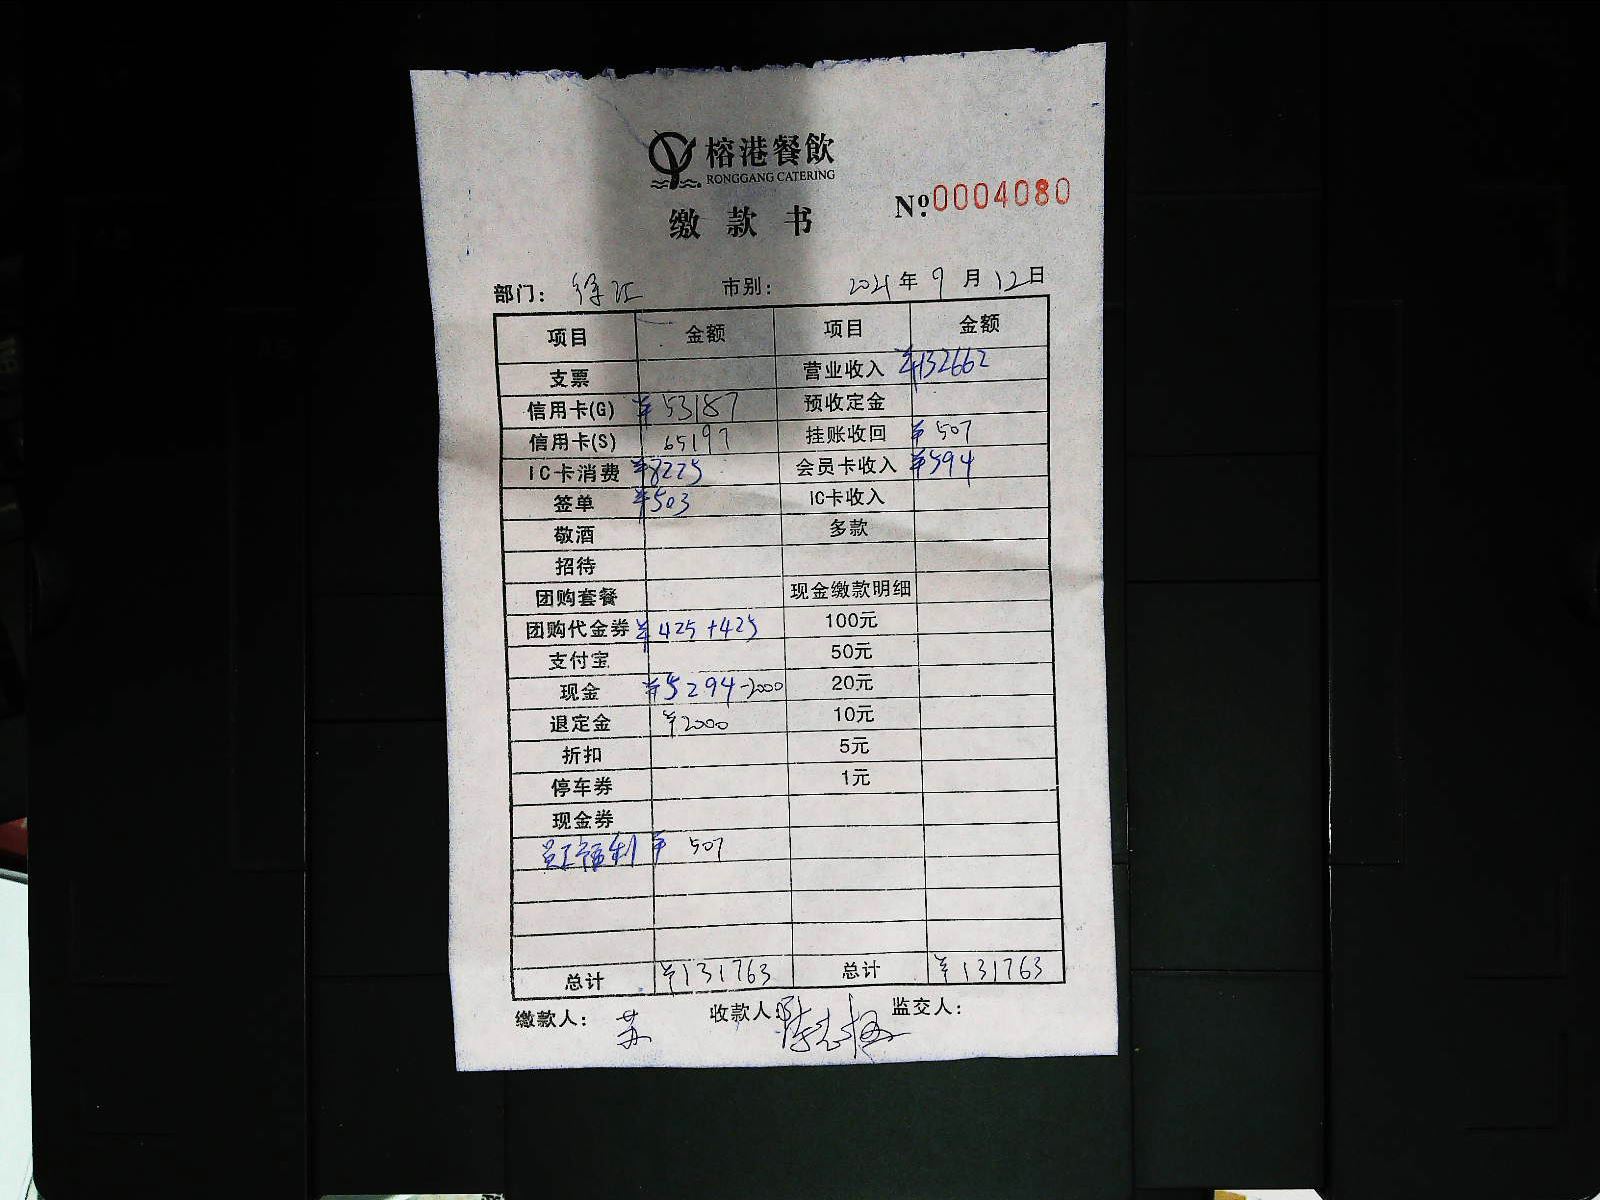 榕港餐飲
RONGGANG CATERING
缴款书 №0004080
部门： 徐汇 市别： 2021年9月12日
项目 金额 项目 金额
支票 营业收入 ¥132662
信用卡(G) ¥53187 预收定金
信用卡(S) 65197 挂账收回 ¥507
IC卡消费 ¥8225 会员卡收入 ¥594
签单 ¥503 IC卡收入
敬酒 多款
招待
团购套餐 现金缴款明细
团购代金券 ¥425+425 100元
支付宝 50元
现金 ¥5294-2000 20元
退定金 ¥2000 10元
折扣 5元
停车券 1元
现金券
员工福利 ¥507
总计 ¥131763 总计 ¥131763
缴款人： 苏 收款人： 监交人：